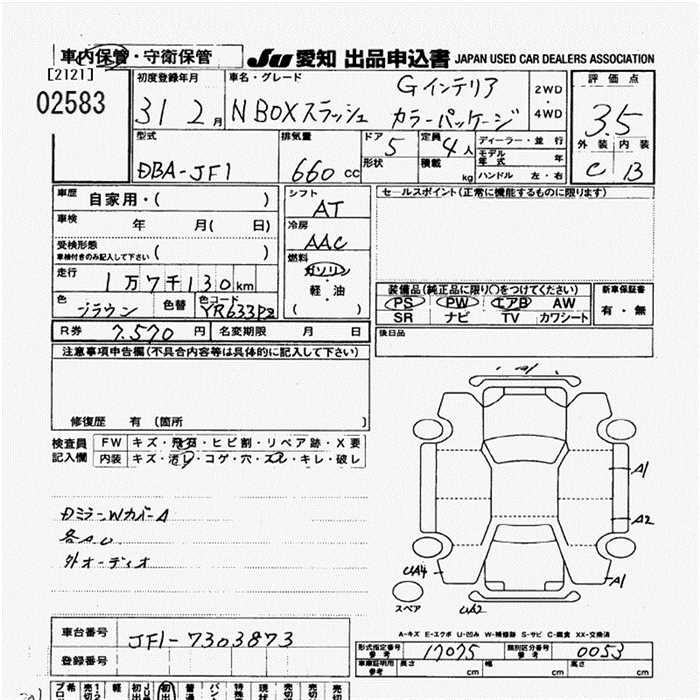 車内保管・守衛保管 JU 愛知 出品申込書 JAPAN USED CAR DEALERS ASSOCIATION
[2121]
02583
初度登録年月 車名・グレード 2WD ・ 4WD 評価点
31 2月 N BOXスラッシュ Gインテリア カラーパッケージ 3.5
外装 内装
C B
型式 排気量 ドア 5 定員 4人 ディーラー・並行
形状 積載 kg モデル年式 年
DBA-JF1 660cc ハンドル 左・右
車歴 自家用・( ) シフト AT セールスポイント(正常に機能するものに限ります)
車検 年 月( 日) 冷房 AAC
受検形態 車検付きのみ記入して下さい ( ) 燃料 ガソリン
軽・油
( )
走行 1万7千130km
色 ブラウン 色替 色コード YR633P2
装備品(純正品に限り○をつけてください) 新車保証書
PS PW エアB AW 有・無
SR ナビ TV カワシート
R券 7.570円 名変期限 月 日 後日品
注意事項申告欄(不具合内容等は具体的に記入して下さい)
修復歴 有 (箇所 )
検査員記入欄 FW キズ・飛石・ヒビ割・リペア跡・X要
内装 キズ・汚レ・コゲ・穴・スレ・キレ・破レ
DミラーWカバーA
各AU
外オーディオ
A1
A2
UA4
A1
スペア
UA2
A-キズ E-エクボ U-凹み W-補修跡 S-サビ C-腐食 XX-交換済
車台番号 JF1-7303873
登録番号
型式指定番号 参考 17075 類別区分番号 参考 0053
車庫証明用 参考 長さ cm 幅 cm 高さ cm